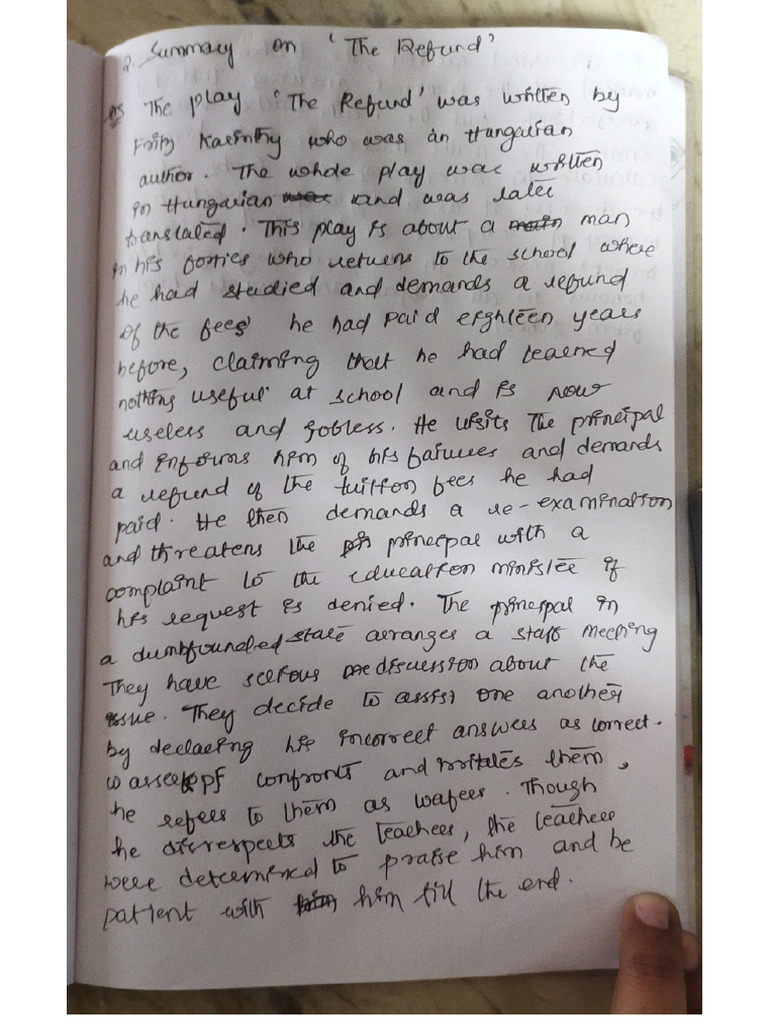 2. Summary on 'The Refund'
as The play 'The Refund' was written by
Fritz Karinthy who was an Hungarian
author. The whole play was written
in Hungarian and was later
translated. This play is about a man
in his forties who returns to the school where
he had studied and demands a refund
of the fees he had paid eighteen years
before, claiming that he had learned
nothing useful at school and is now
useless and jobless. He visits the principal
and informs him of his failures and demands
a refund of the tuition fees he had
paid. He then demands a re-examination
and threatens the principal with a
complaint to the education minister if
his request is denied. The principal in
a dumbfounded state arranges a staff meeting
They have serious discussion about the
issue. They decide to assist one another
by declaring his incorrect answers as correct.
wasserkopf confronts and irritates them,
he refers to them as wafers. Though
he disrespects the teachers, the teachers
were determined to praise him and be
patient with him till the end.